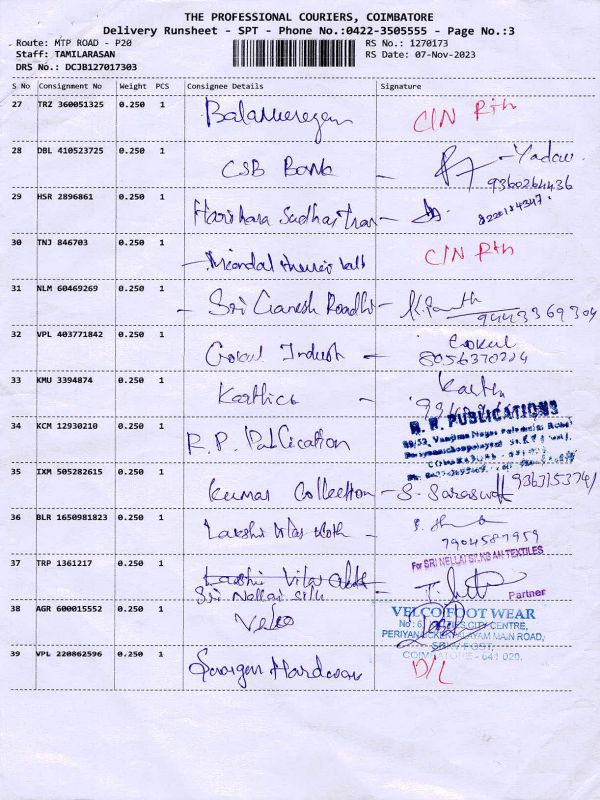 THE PROFESSIONAL COURIERS, COIMBATORE
Delivery Runsheet - SPT - Phone No.:0422-3505555 - Page No.:3
Route: MTP ROAD - P20
Staff: TAMILARASAN
DRS No.: DCJB127017303
RS No.: 1270173
RS Date: 07-Nov-2023
S No Consignment No Weight PCS Consignee Details Signature
27 TRZ 360051325 0.250 1 C/N Rtn
28 DBL 410523725 0.250 1 CSB Bank - Yadav
9360264436
29 HSR 2896861 0.250 1 Harihara Sudhar -
8220184347
30 TNJ 846703 0.250 1 C/N Rtn
31 NLM 60469269 0.250 1 - Sri Ganesh -
9443369304
32 VPL 403771842 0.250 1 Gokul - Gokul
8056370224
33 KMU 3394874 0.250 1 -
34 KCM 12930210 0.250 1 R.P. Publication
R. P. PUBLICATIONS
35 IXM 505282615 0.250 1 Kumar Collection -
36 BLR 1650981823 0.250 1 -
7904587959
37 TRP 1361217 0.250 1
Sri Nellai silk
For SRI NELLAI SILKS AN TEXTILES
Partner
38 AGR 600015552 0.250 1 Velco
VELCO FOOT WEAR
CITY CENTRE,
MAIN ROAD,
POST,
COIMBATORE - 641 020.
39 VPL 220862596 0.250 1 D/L